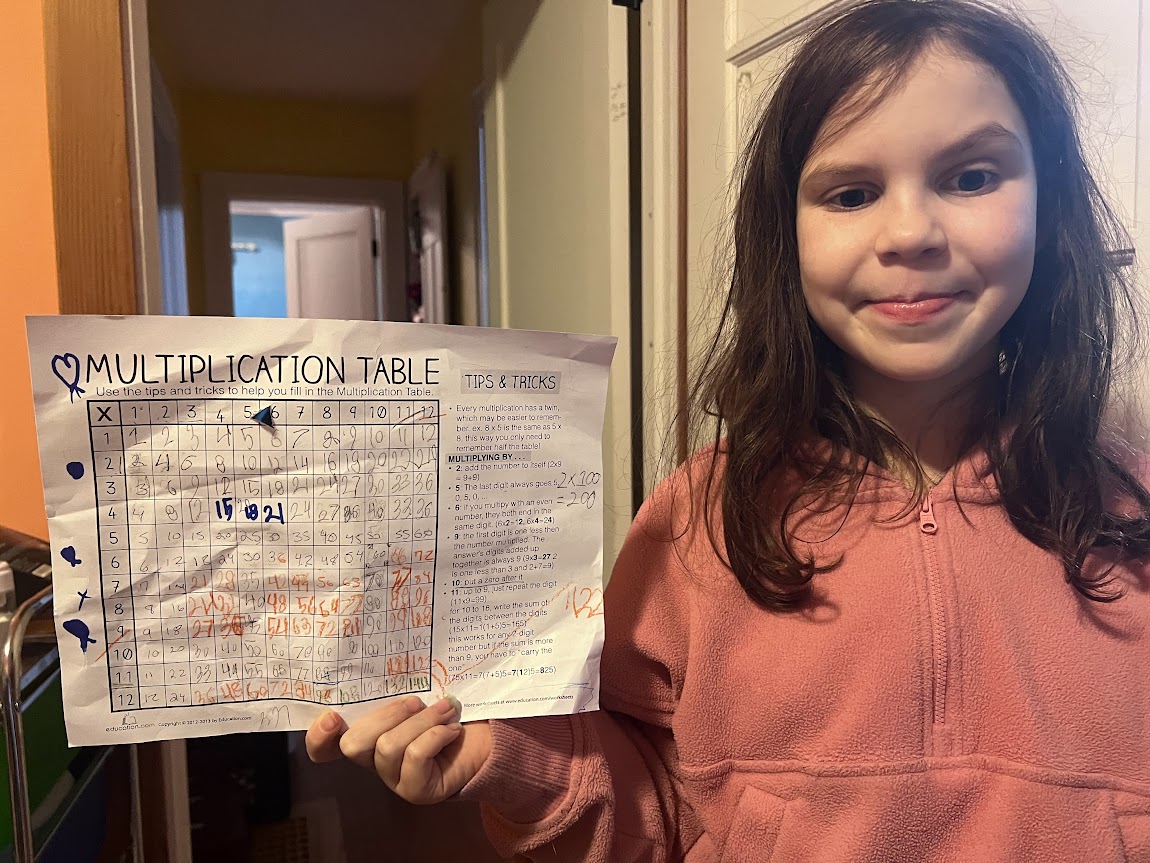 MULTIPLICATION TABLE
Use the tips and tricks to help you fill in the Multiplication Table.
X 1 2 3 4 5 6 7 8 9 10 11 12
1 1 2 3 4 5 6 7 8 9 10 11 12
2 2 4 6 8 10 12 14 16 18 20 22
3 3 6 9 12 15 18 21 24 27 30 33 36
4 4 8 12 15 18 21 24 27 36 40 33 36
5 5 10 15 20 25 30 35 40 45 50 55 60
6 6 12 18 24 30 36 42 48 54 60 66 72
7 14 21 28 35 42 49 56 63 70 77 84
8 16 40 48 56 64
9 9 18 27 36 54 63 72 81 90
10 10 20 30 40 50 60 90 100 110
11 33 44 55
12 12 24 36 48 60 72 132 144
TIPS & TRICKS
• Every multiplication has a twin,
which may be easier to remem-
ber. ex. 8 x 5 is the same as 5 x
8, this way you only need to
remember half the table!
MULTIPLYING BY . . .
• 2: add the number to itself (2x9
= 9+9)
• 5: The last digit always goes 5,
0, 5, 0, ...
• 6: if you multipy with an even
number, they both end in the
same digit. (6x2=12, 6x4=24)
• 9: the first digit is one less then
the number multiplied. The
answer's digits added up
together is always 9 (9x3=27 2
is one less than 3 and 2+7=9)
• 10: put a zero after it
• 11: up to 9, just repeat the digit
(11x9=99)
for 10 to 18, write the sum of
the digits between the digits
(15x11=1(1+5)5=165)
this works for any 2 digit
number but if the sum is more
than 9, you have to "carry the
one"
(75x11=7(7+5)5=7(12)5=825)
2x100
=200
132
education.com Copyright © 2012-2013 by Education.com
More worksheets at www.education.com/worksheets